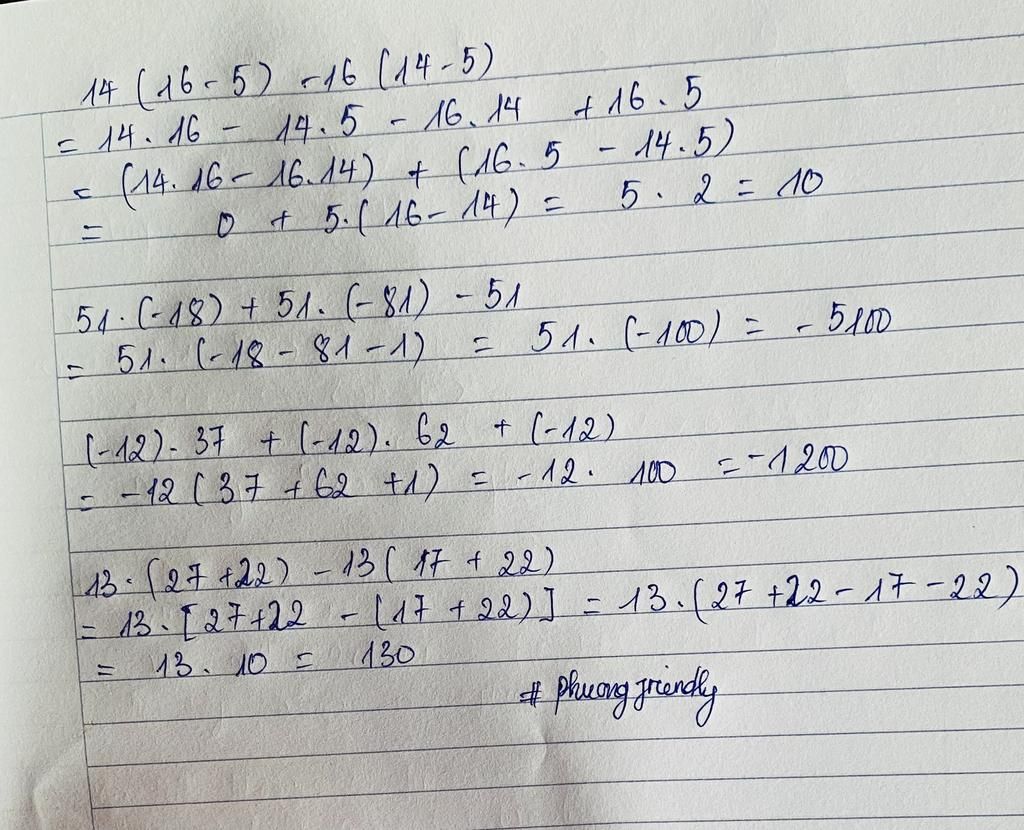 14 (16 - 5) - 16 (14 - 5)
= 14. 16 - 14. 5 - 16. 14 + 16. 5
= (14. 16 - 16. 14) + (16. 5 - 14. 5)
= 0 + 5. (16 - 14) = 5. 2 = 10
51. (-18) + 51. (-81) - 51
= 51. (-18 - 81 - 1) = 51. (-100) = - 5100
(-12). 37 + (-12). 62 + (-12)
= -12 (37 + 62 + 1) = -12. 100 = -1200
13. (27 + 22) - 13 (17 + 22)
= 13. [27 + 22 - (17 + 22)] = 13. (27 + 22 - 17 - 22)
= 13. 10 = 130
# phuongfriendly